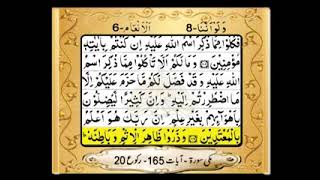 وَلَوْ اَنَّنَا -8 اَلْاَنْعَام -6
فَكُلُوْا مِمَّا ذُكِرَ اسْمُ اللّٰهِ عَلَيْهِ اِنْ كُنْتُمْ بِاٰيٰتِهٖ
مُؤْمِنِيْنَ ۝ وَمَا لَكُمْ اَلَّا تَاْكُلُوْا مِمَّا ذُكِرَ اسْمُ
اللّٰهِ عَلَيْهِ وَقَدْ فَصَّلَ لَكُمْ مَّا حَرَّمَ عَلَيْكُمْ اِلَّا
مَا اضْطُرِرْتُمْ اِلَيْهِ ؕ وَاِنَّ كَثِيْرًا لَّيُضِلُّوْنَ
بِاَهْوَآئِهِمْ بِغَيْرِ عِلْمٍ ؕ اِنَّ رَبَّكَ هُوَ اَعْلَمُ
بِالْمُعْتَدِيْنَ ۝ وَذَرُوْا ظَاهِرَ الْاِثْمِ وَبَاطِنَهٗ ؕ
مکی سورۃ - آیات 165 - رکوع 20